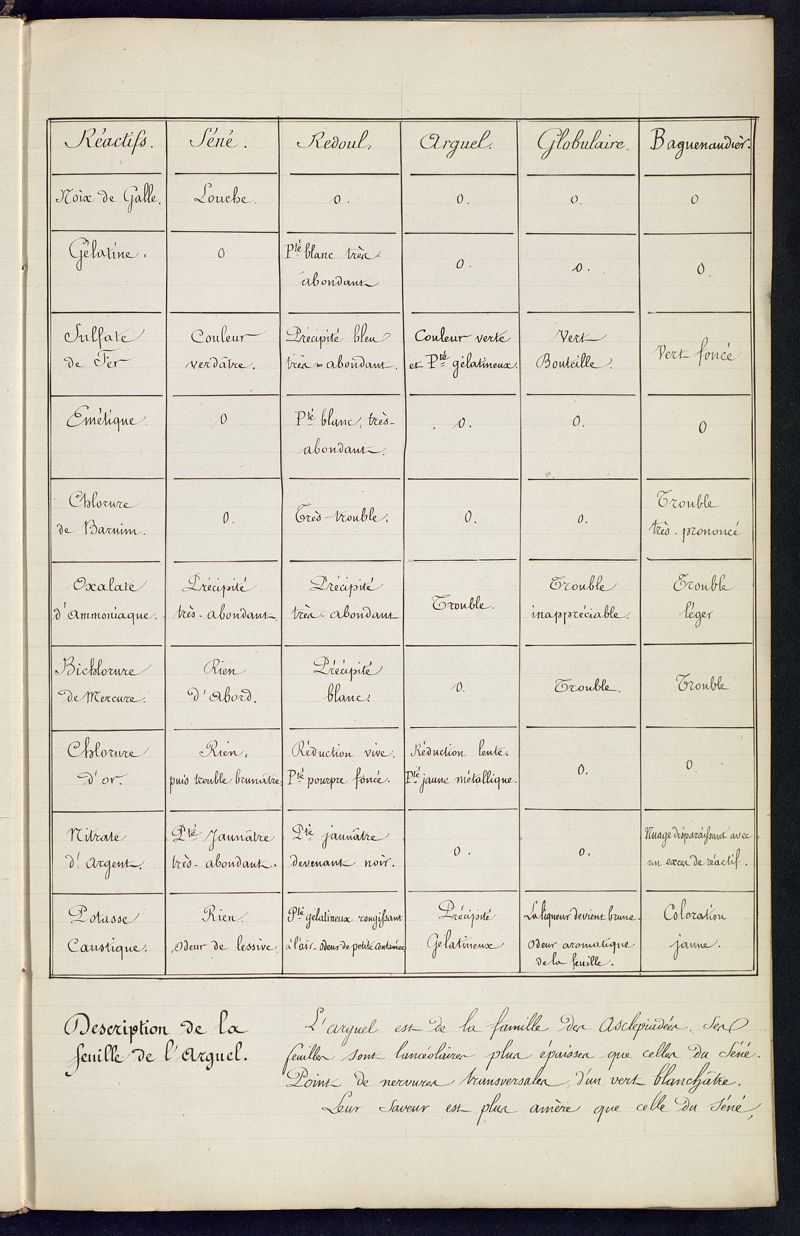 Réactifs. Séné. Redoul. Arguel. Globulaire. Baguenaudier.
Noix de Galle. Louche. 0. 0. 0. 0
Gélatine. 0 Pté blanc très abondant 0. 0. 0.
Sulfate de Fer Couleur verdâtre. Précipité bleu très-abondant. Couleur verte et Pté gélatineux. Vert Bouteille. Vert foncé
Emétique. 0 Pté blanc, très-abondant. 0. 0. 0
Chlorure de Barium. 0. Très-trouble. 0. 0. Trouble très-prononcé
Oxalate d'Ammoniaque. Précipité très-abondant. Précipité très-abondant Trouble. Trouble inappréciable. Trouble léger
Bichlorure de Mercure. Rien d'Abord. Précipité blanc. 0. Trouble. Trouble
Chlorure d'or. Rien, puis trouble brunâtre. Réduction vive. Pté pourpre foncé. Réduction lente. Pté jaune métallique. 0. 0.
Nitrate d'Argent. Pté Jaunâtre très-abondant. Pté jaunâtre devenant noir. 0. 0. Nuage disparaissant avec un excès de réactif.
Potasse Caustique. Rien. odeur de lessive. Pté gélatineux rougissant à l'air-odeur de petite centaurée Précipité Gélatineux La liqueur devient brune. odeur aromatique de la feuille. Coloration jaune.
Description de la
feuille de l'Arguel.
L'arguel est de la famille des Asclepiadées, Ses
feuilles sont lancéolaires plus épaisses que celles du Séné.
Point de nervures transversales, d'un vert blanchâtre.
Leur Saveur est plus amère que celle du Séné,